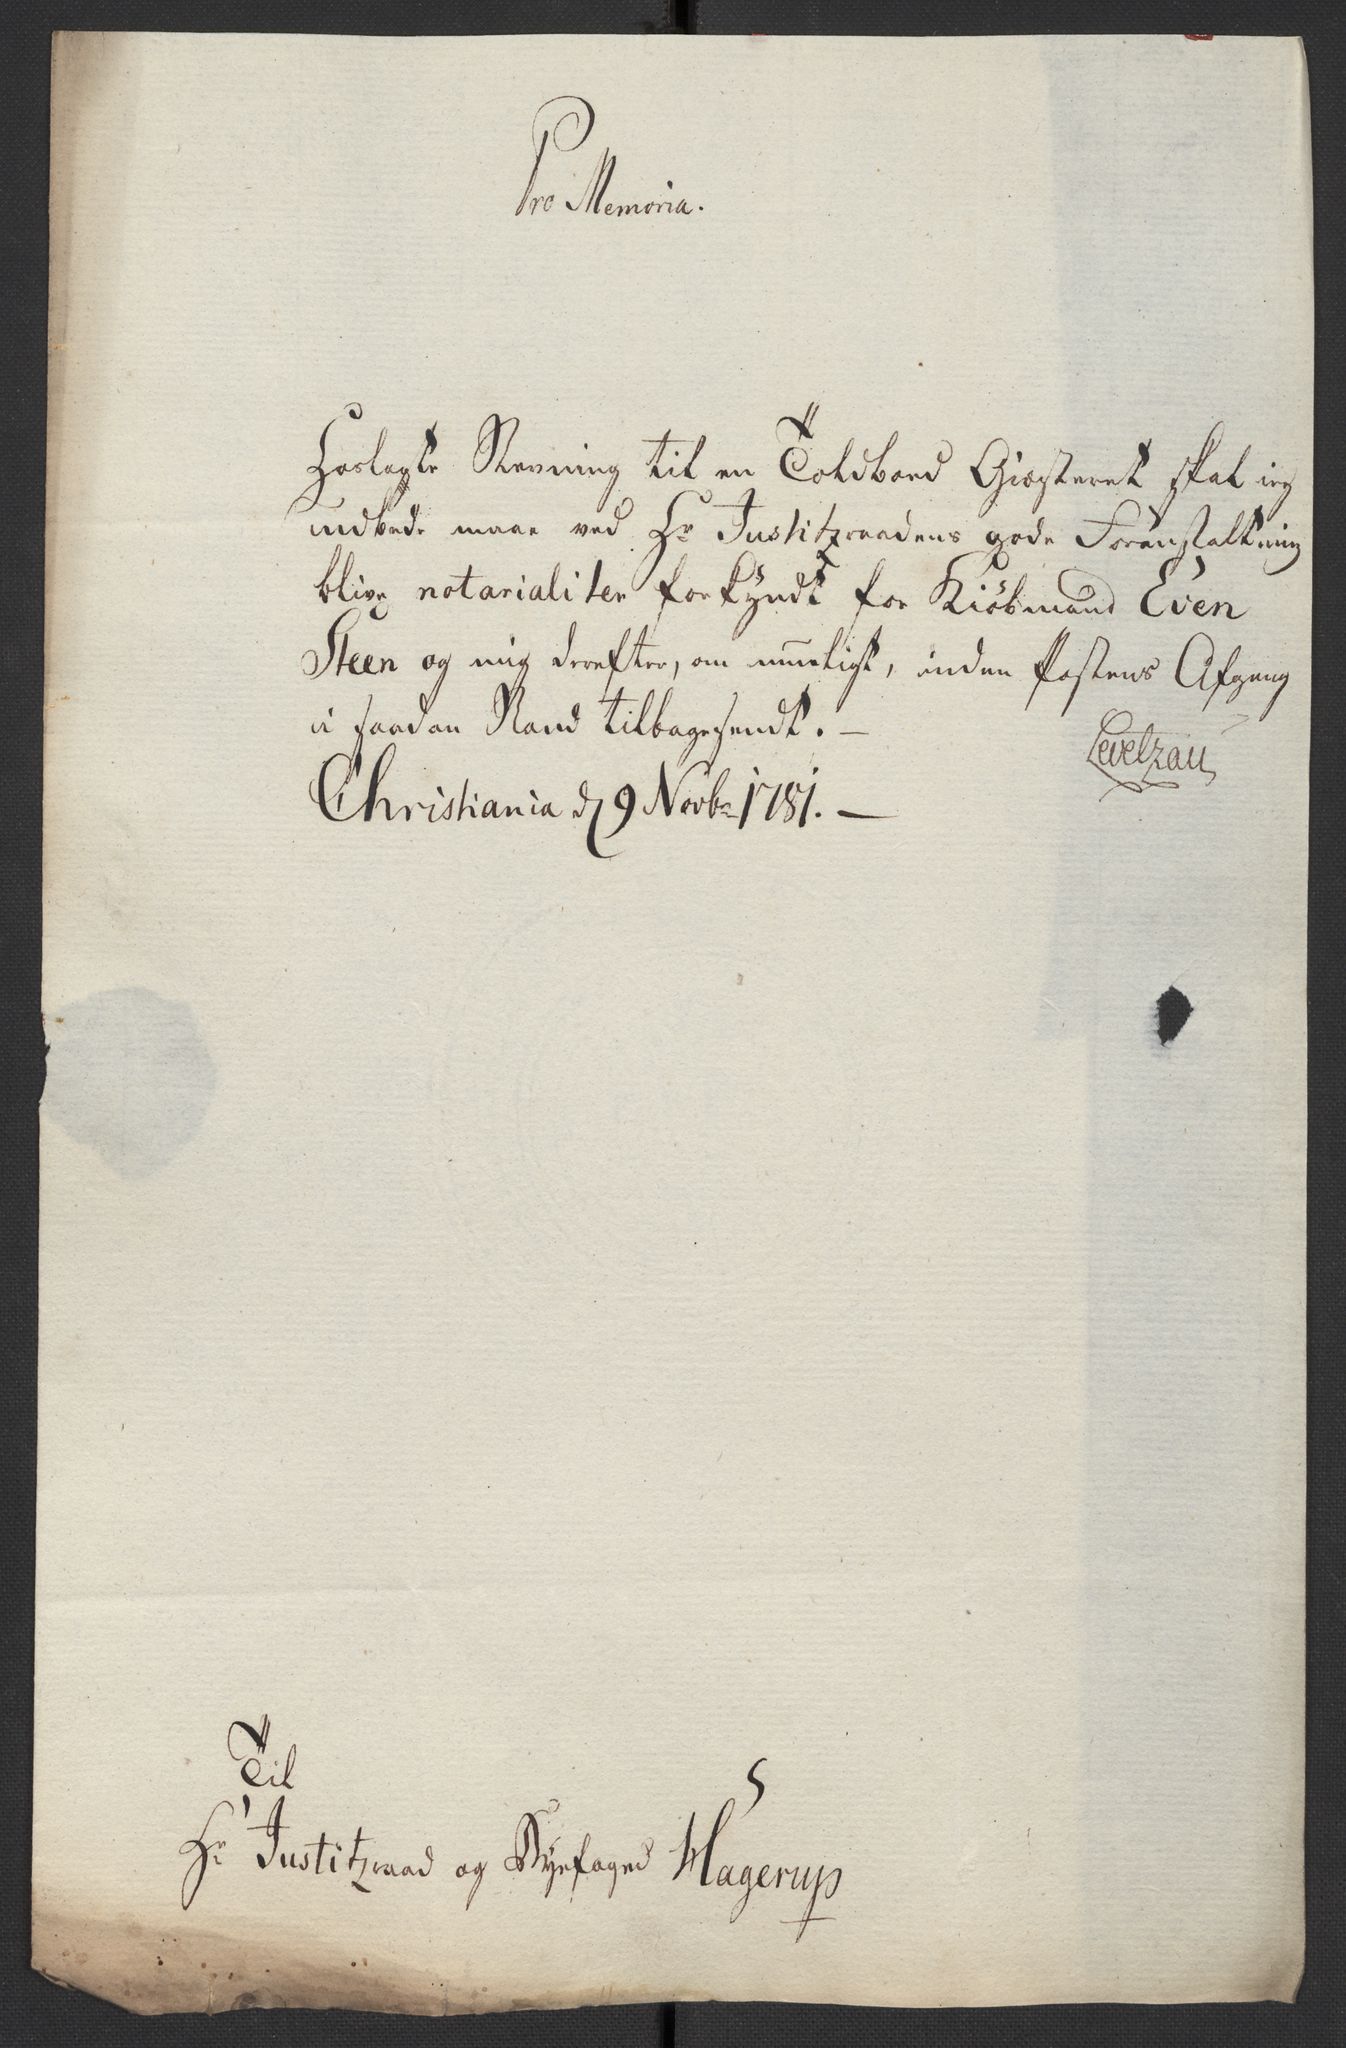 Pro Memoria.
Hoslagte Stevning til en Toldboed Giæsteret skal ieg
udbede maae ved Hr Justitzraadens gode Foranstaltning
blive notarialiter forkyndt for Kiöbmand Even
Steen og mig derefter, om mueligt, inden Postens Afgang
i saadan Stand tilbagesendt. —
Levetzau
Christiania d 9 Novbr 1781. —
Til
Hr Justitzraad og Byefoged Hagerup